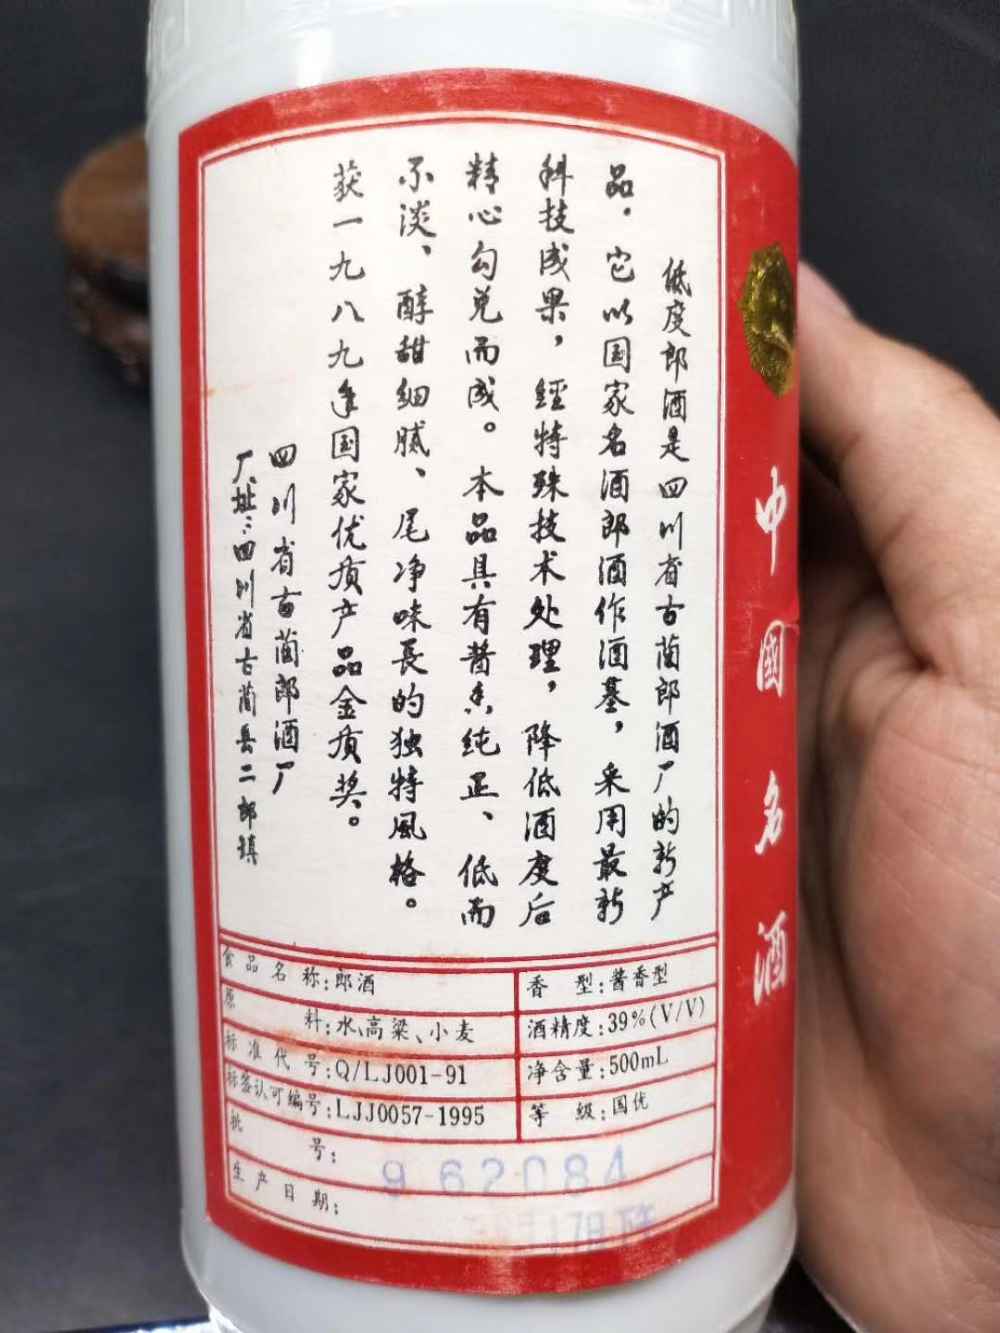 低度郎酒是四川省古蔺郎酒厂的新产
品。它以国家名酒郎酒作酒基，采用最新
科技成果，经特殊技术处理，降低酒度后
精心勾兑而成。本品具有酱香纯正、低而
不淡、醇甜细腻、尾净味長的独特風格。
获一九八九年国家优质产品金质奖。
四川省古蔺郎酒厂
厂址：四川省古蔺县二郎镇
中國名酒
食品名称：郎酒
香型：酱香型
原料：水、高粱、小麦
酒精度：39%(V/V)
标准代号：Q/LJ001-91
净含量：500mL
标签认可编号：LJJ0057-1995
等级：国优
批号：962084
生产日期：